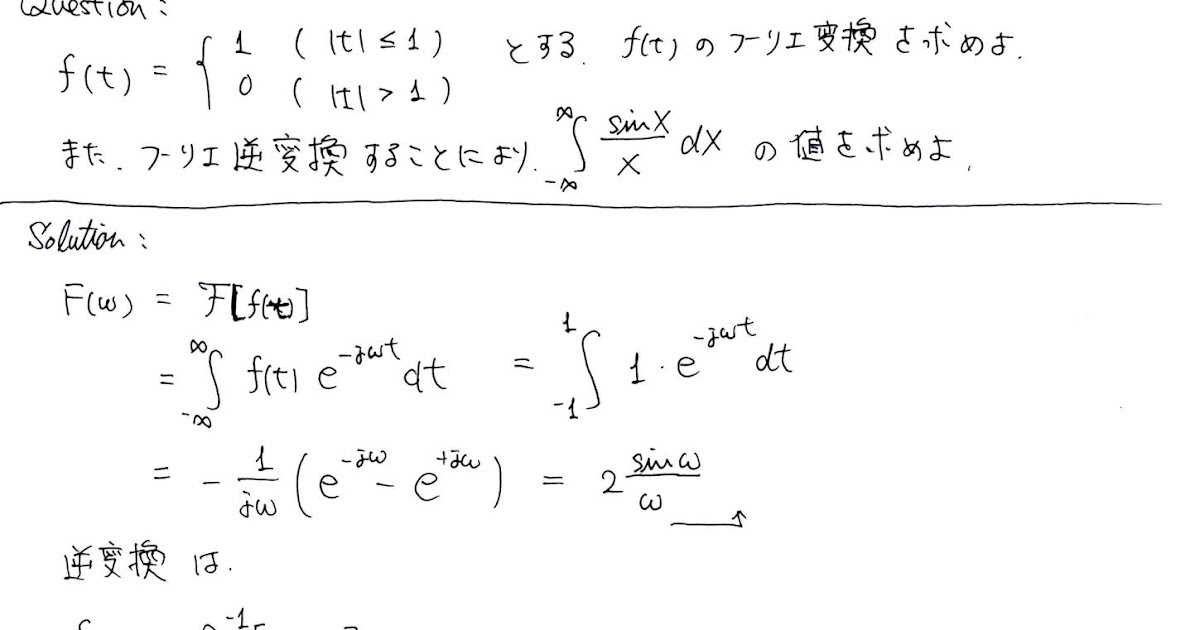 Question :
f(t) = { 1 ( |t| ≤ 1 ) とする. f(t) のフーリエ変換を求めよ.
0 ( |t| > 1 )
また. フーリエ逆変換することにより. ∫_{-∞}^{∞} sinx/x dx の値を求めよ.
Solution :
F(ω) = F[f(t)]
= ∫_{-∞}^{∞} f(t) e^{-jωt} dt = ∫_{-1}^{1} 1・e^{-jωt} dt
= - 1/jω ( e^{-jω} - e^{+jω} ) = 2 sinω/ω
逆変換は.